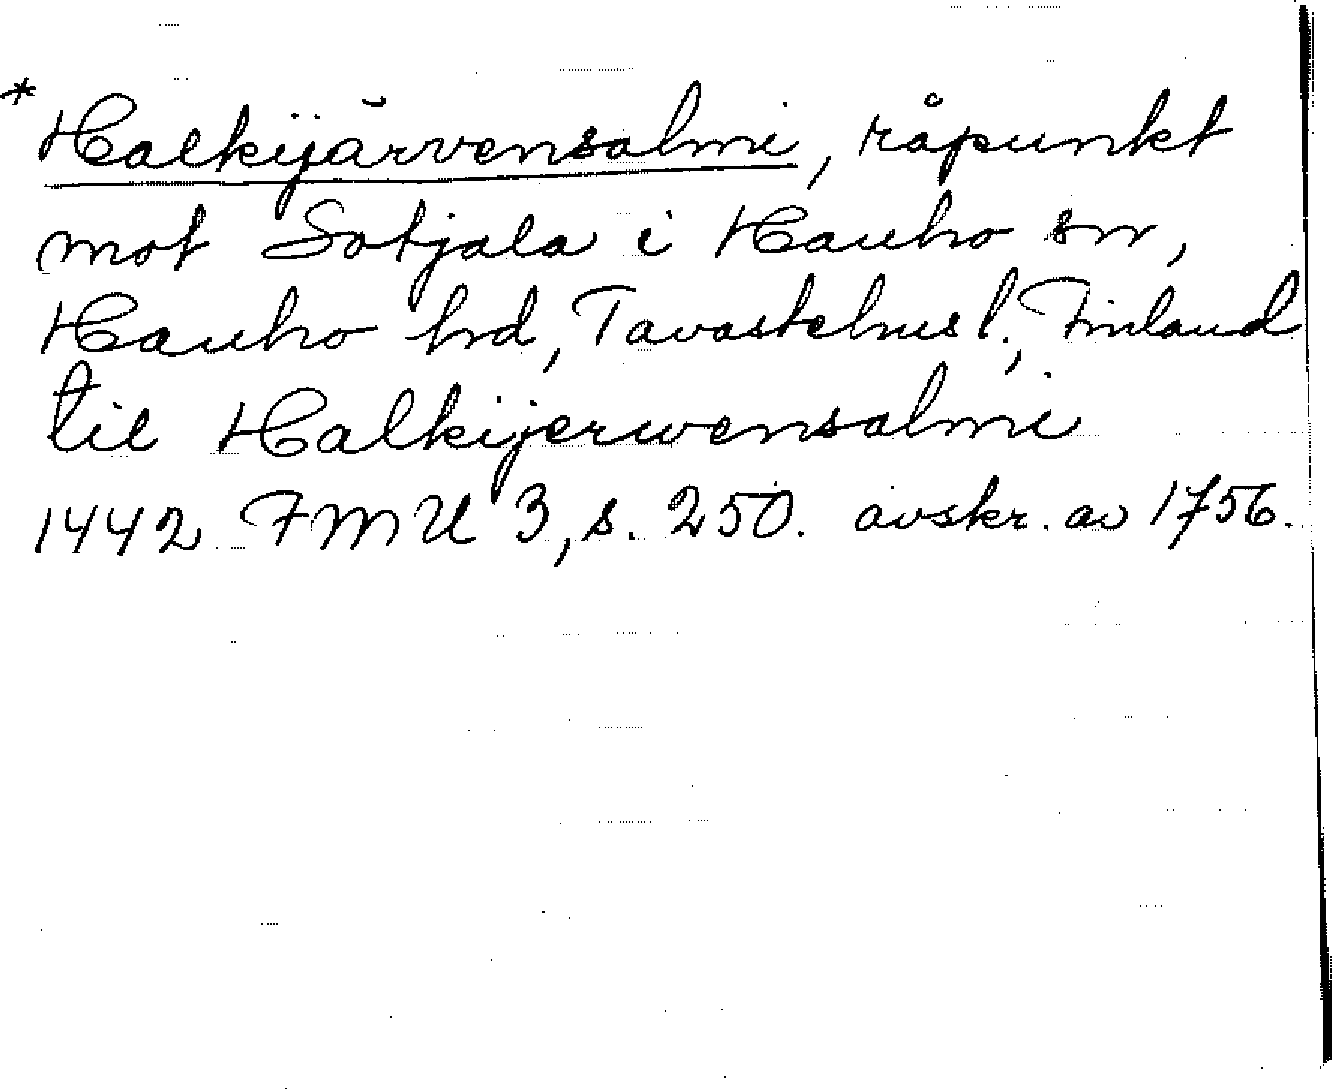 *Halkijärvensalmi, råpunkt
mot Sotjala i Hauho sn,
Hauho hd, Tavastehus l., Finland
til Halkijerwensalmi
1442 FMU 3, s. 250. avskr. av 1756.